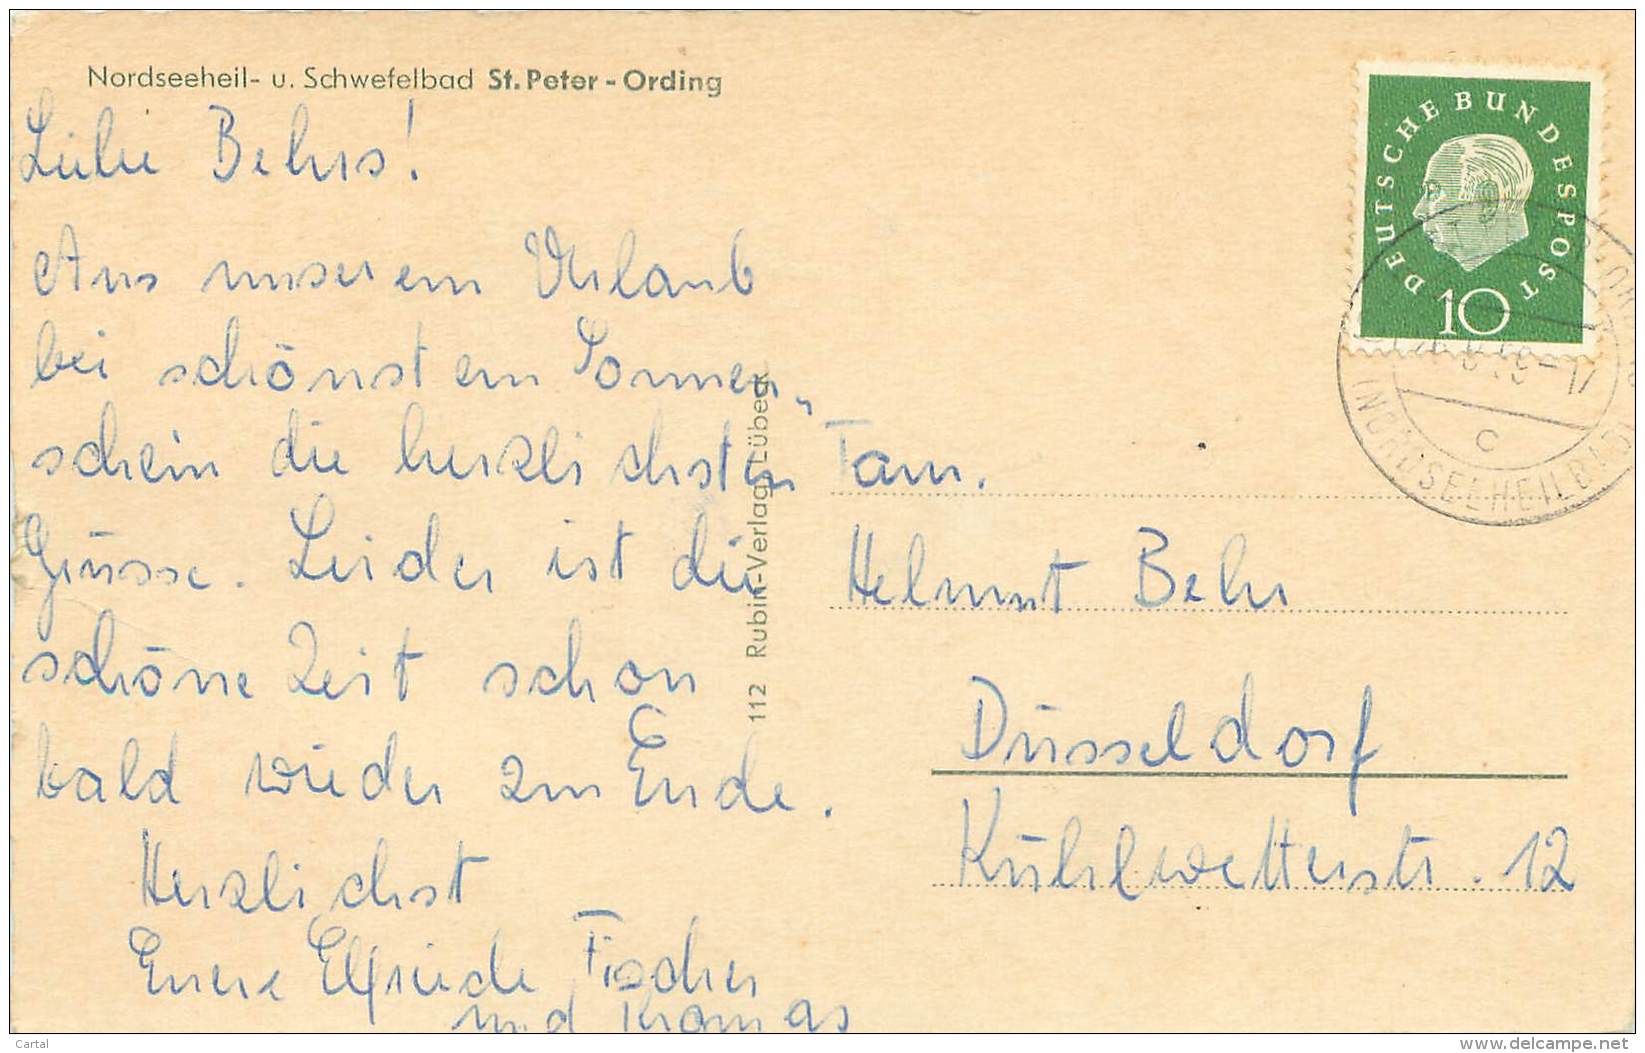 Nordseeheil- u. Schwefelbad St. Peter - Ording
Liebe Behrs!
Aus unserem Urlaub
bei schönstem Sonnen„
schein die herzlichsten
Grüsse. Leider ist die
schöne Zeit schon
bald wieder zum Ende.
Herzlichst
Euere Elfriede Fischer
und Thomas
112 Rubin-Verlag, Lübeck
DEUTSCHE BUNDESPOST
10
c
(NORDSEEHEILBAD)
Fam.
Helmut Behr
Düsseldorf
Kühlwetterstr. 12
Cartal
www.delcampe.net